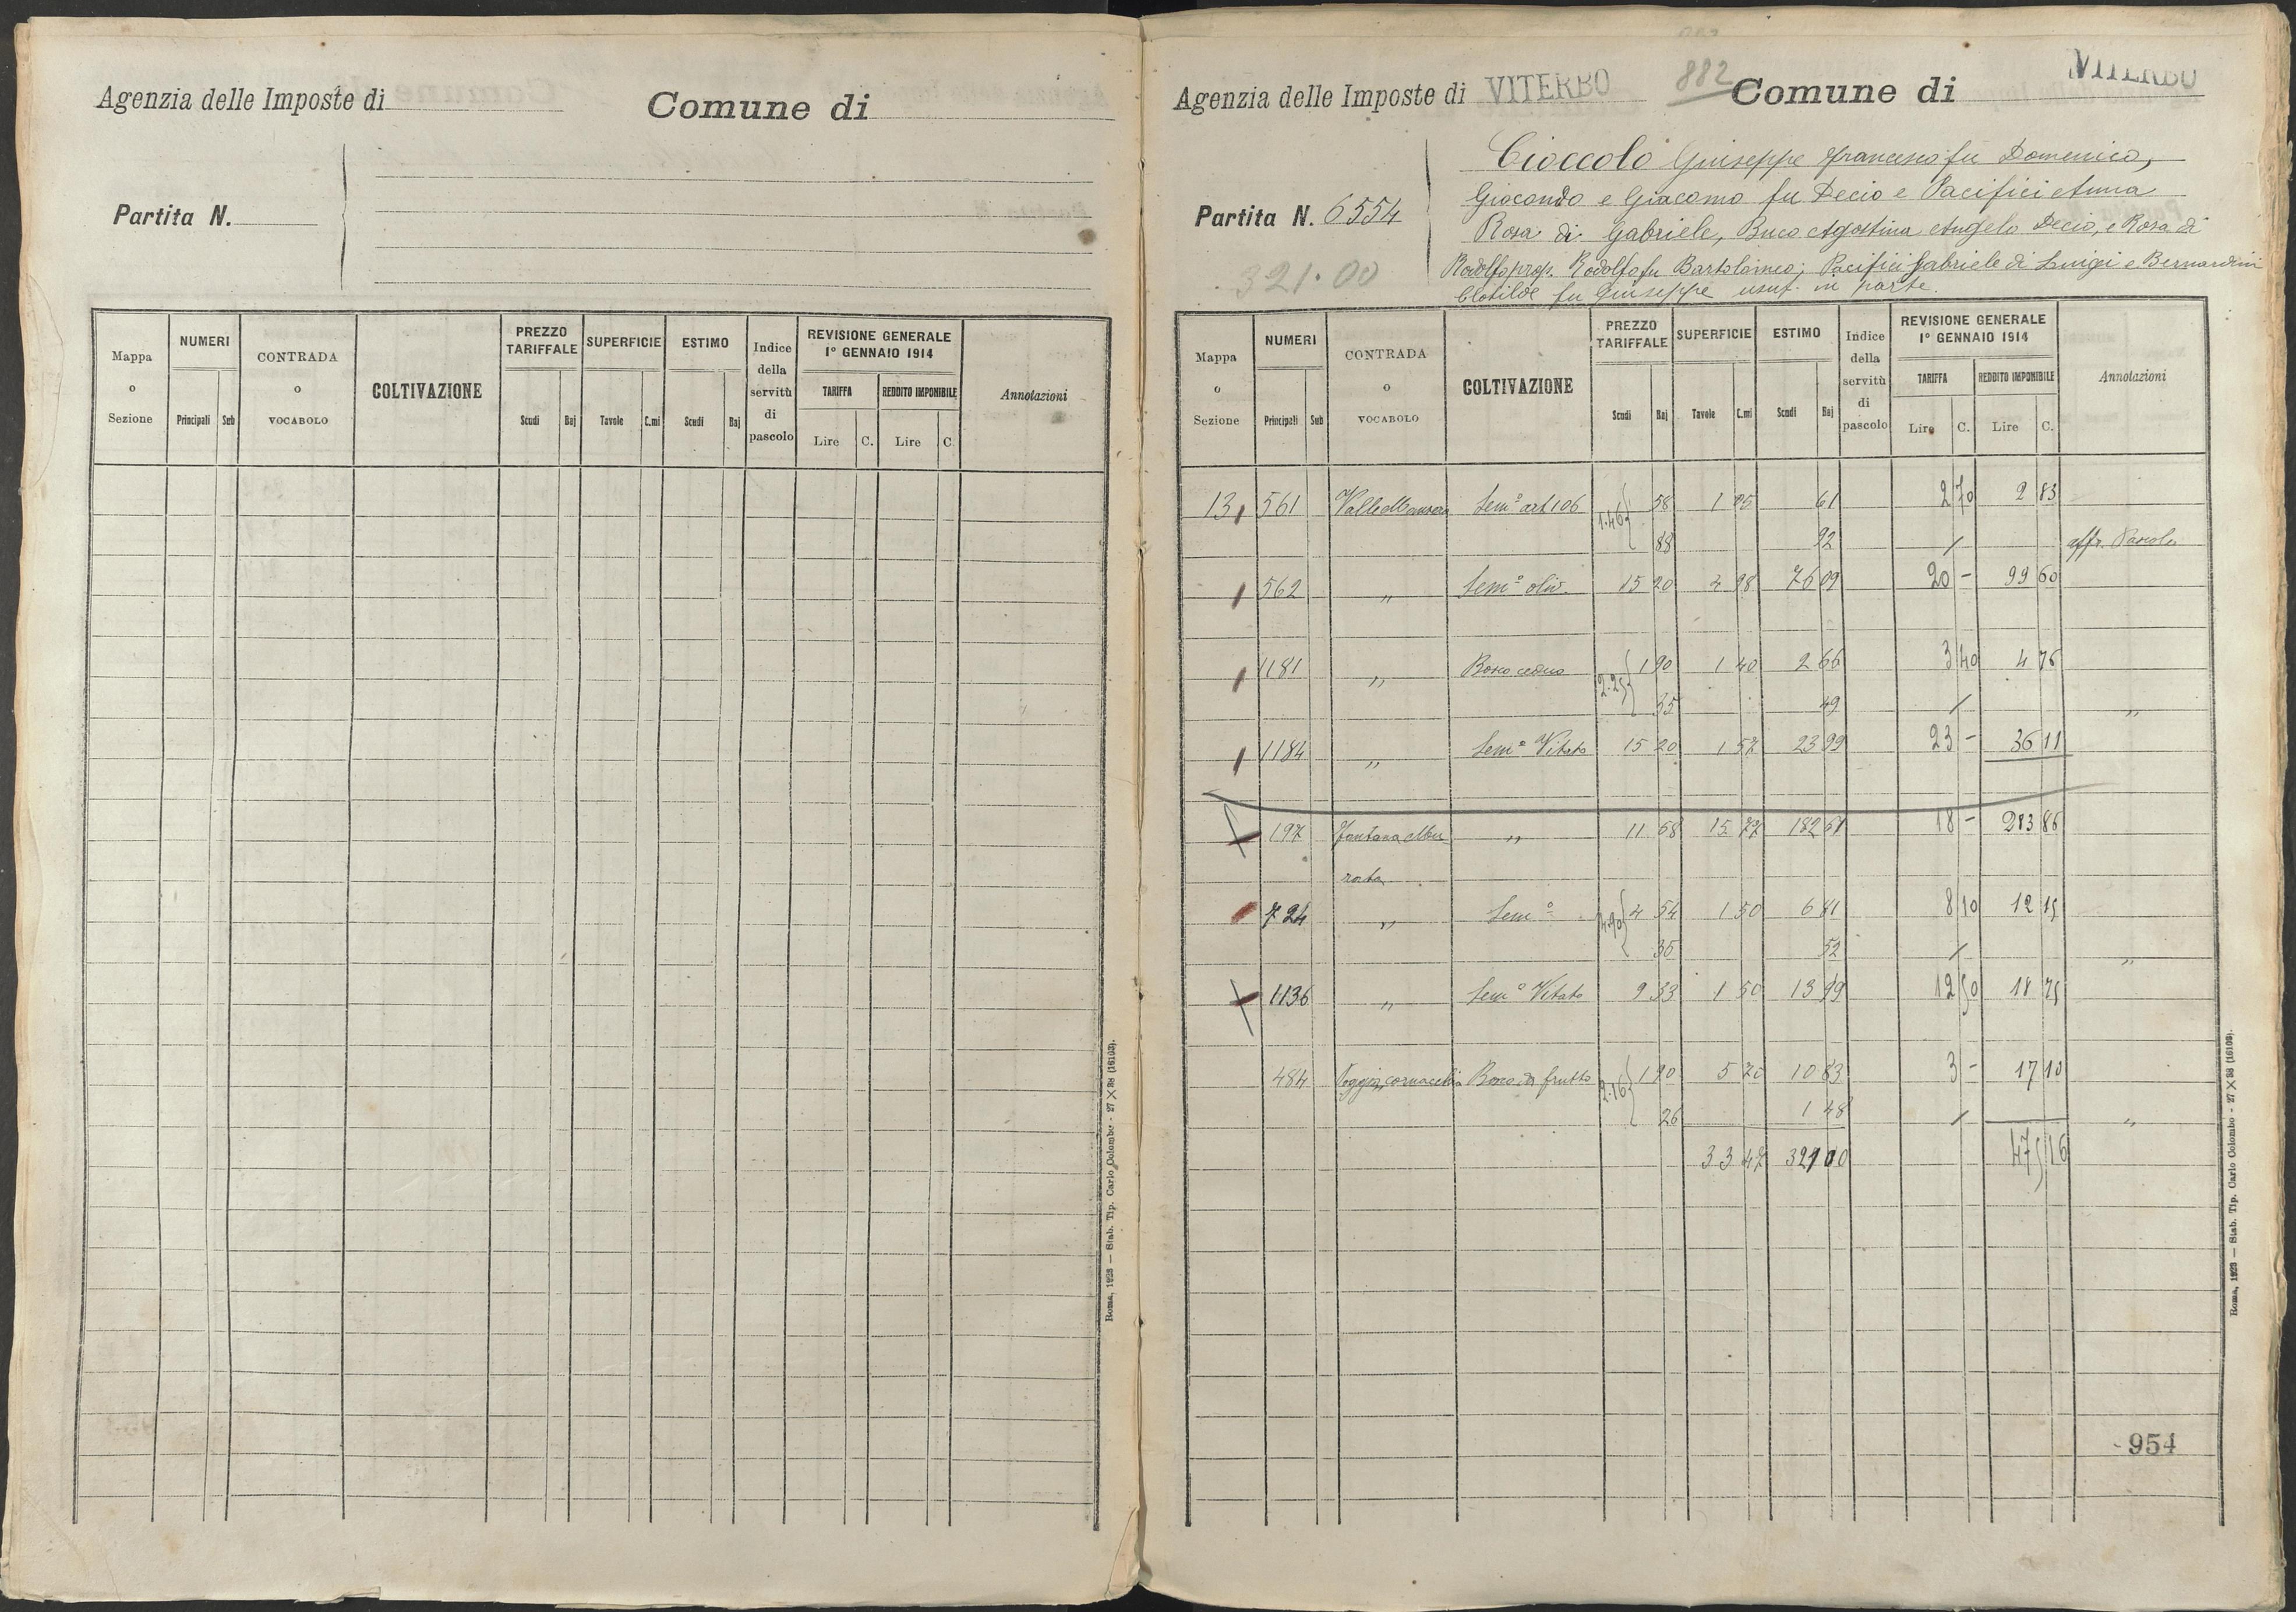 Agenzia delle Imposte di
Comune di
Partita N.
Mappa o Sezione
NUMERI
Principali Sub
CONTRADA o VOCABOLO
COLTIVAZIONE
PREZZO TARIFFALE
Scudi Baj
SUPERFICIE
Tavole C.mi
ESTIMO
Scudi Baj
Indice della servitù di pascolo
REVISIONE GENERALE
1° GENNAIO 1914
TARIFFA
Lire C.
REDDITO IMPONIBILE
Lire C.
Annotazioni
Roma, 1923 — Stab. Tip. Carlo Colombo - 27 X 38 (16103).
882
Agenzia delle Imposte di VITERBO
Comune di VITERBO
Partita N. 6554
321.00
Cioccolo Giuseppe Francesco fu Domenico,
Giocondo e Giacomo fu Decio e Pacifici Anna
Rosa di Gabriele, Buco Agostina Angelo Decio, e Rosa di
Rodolfo prop. Rodolfo fu Bartolomeo; Pacifici Gabriele di Luigi e Bernardini
Clotilde fu Giuseppe usuf. in parte.
Mappa o Sezione
NUMERI
Principali Sub
CONTRADA o VOCABOLO
COLTIVAZIONE
PREZZO TARIFFALE
Scudi Baj
SUPERFICIE
Tavole C.mi
ESTIMO
Scudi Baj
Indice della servitù di pascolo
REVISIONE GENERALE
1° GENNAIO 1914
TARIFFA
Lire C.
REDDITO IMPONIBILE
Lire C.
Annotazioni
13 561 Semo art 106 1.46 58 1 05 61 2 70 2 83
88 92 / aff. Pascolo
562 " Semo oliv. 15 20 4 98 76 09 20 - 99 60
1181 " Bosco ceduo 2.25 1 90 1 40 2 66 3 40 4 76
35 49 / "
1184 " Semo Vitato 15 20 1 57 23 99 23 - 36 11
197 Fontana Mu " 11 58 15 77 182 61 18 - 283 86
rata
724 " Semo 4.90 4 54 1 50 6 81 8 10 12 15
35 52 / "
1136 " Semo Vitato 9 33 1 50 13 99 12 50 18 75
484 Poggio cornacchia Bosco da frutto 2.16 1 90 5 70 10 83 3 - 17 10
26 1 48 / "
33 47 321 00 475 16
954
Roma, 1923 — Stab. Tip. Carlo Colombo - 27 X 38 (16103).